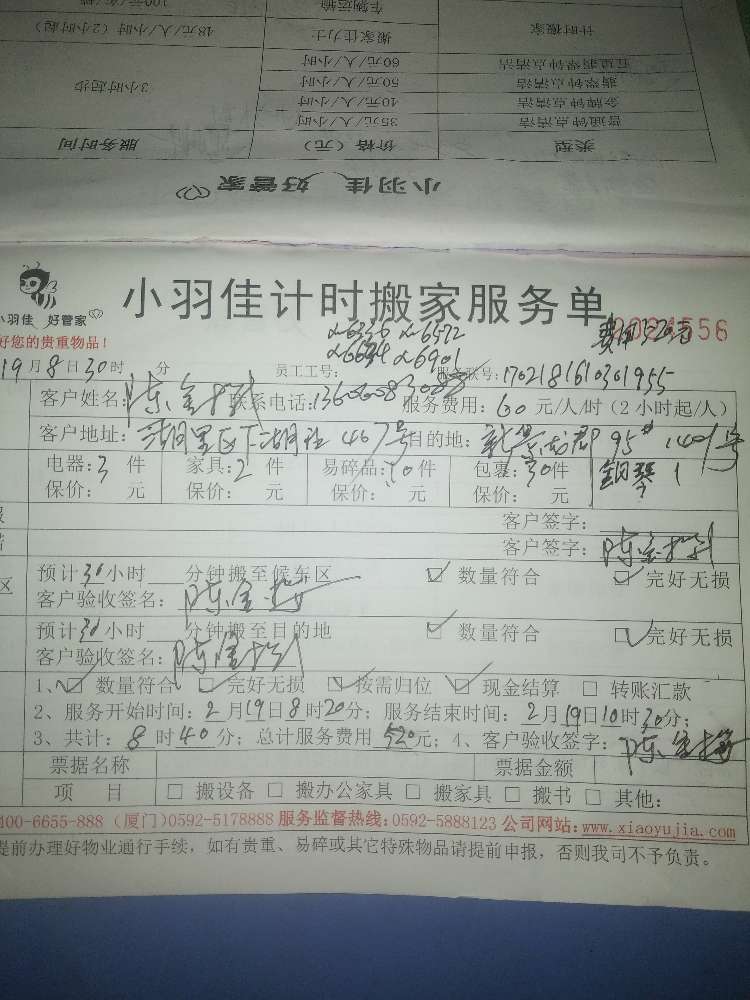 车辆运输 100元/车/趟
计时搬家 搬家佳力士 48元/人/小时（2小时起）
五星翡翠钟点清洁 60元/人/小时
翡翠钟点清洁 50元/人/小时 3小时起步
金牌钟点清洁 40元/人/小时
普通钟点清洁 35元/人/小时
类型 价格（元） 服务时间
小羽佳 好管家
小羽佳 好管家
小羽佳计时搬家服务单
好您的贵重物品！
19月8日30时 分 员工工号：
客户姓名： 联系电话： 服务费用：60元/人/时（2小时起/人）
客户地址： 467号 目的地： 95# 1401号
电器：3件 家具：2件 易碎品：10件 包裹：30件 鋼琴 1
保价： 元 保价： 元 保价： 元 保价： 元
客户签字：
客户签字：
预计30小时 分钟搬至候车区 ☑ 数量符合 ☑ 完好无损
客户验收签名：
预计30小时 分钟搬至目的地 ☑ 数量符合 ☑ 完好无损
客户验收签名：
1、☑ 数量符合 ☑ 完好无损 ☑ 按需归位 ☑ 现金结算 □ 转账汇款
2、服务开始时间：2月19日8时20分；服务结束时间：2月19日10时30分；
3、共计：8时40分；总计服务费用520元；4、客户验收签字：
票据名称 票据金额
项 目 □ 搬设备 □ 搬办公家具 □ 搬家具 □ 搬书 □ 其他：
400-6655-888 (厦门)0592-5178888 服务监督热线:0592-5888123 公司网站:www.xiaoyujia.com
提前办理好物业通行手续，如有贵重、易碎或其它特殊物品请提前申报，否则我司不予负责。